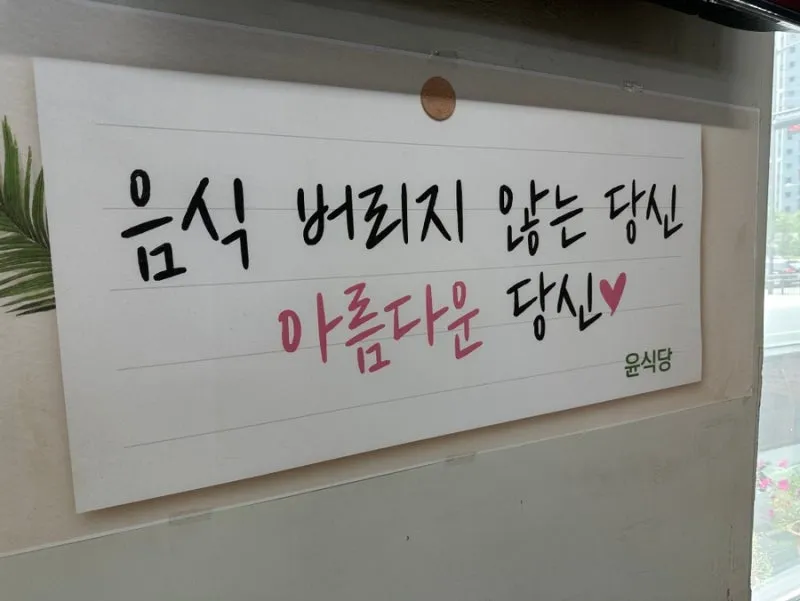 음식 버리지 않는 당신
아름다운 당신♥
윤식당